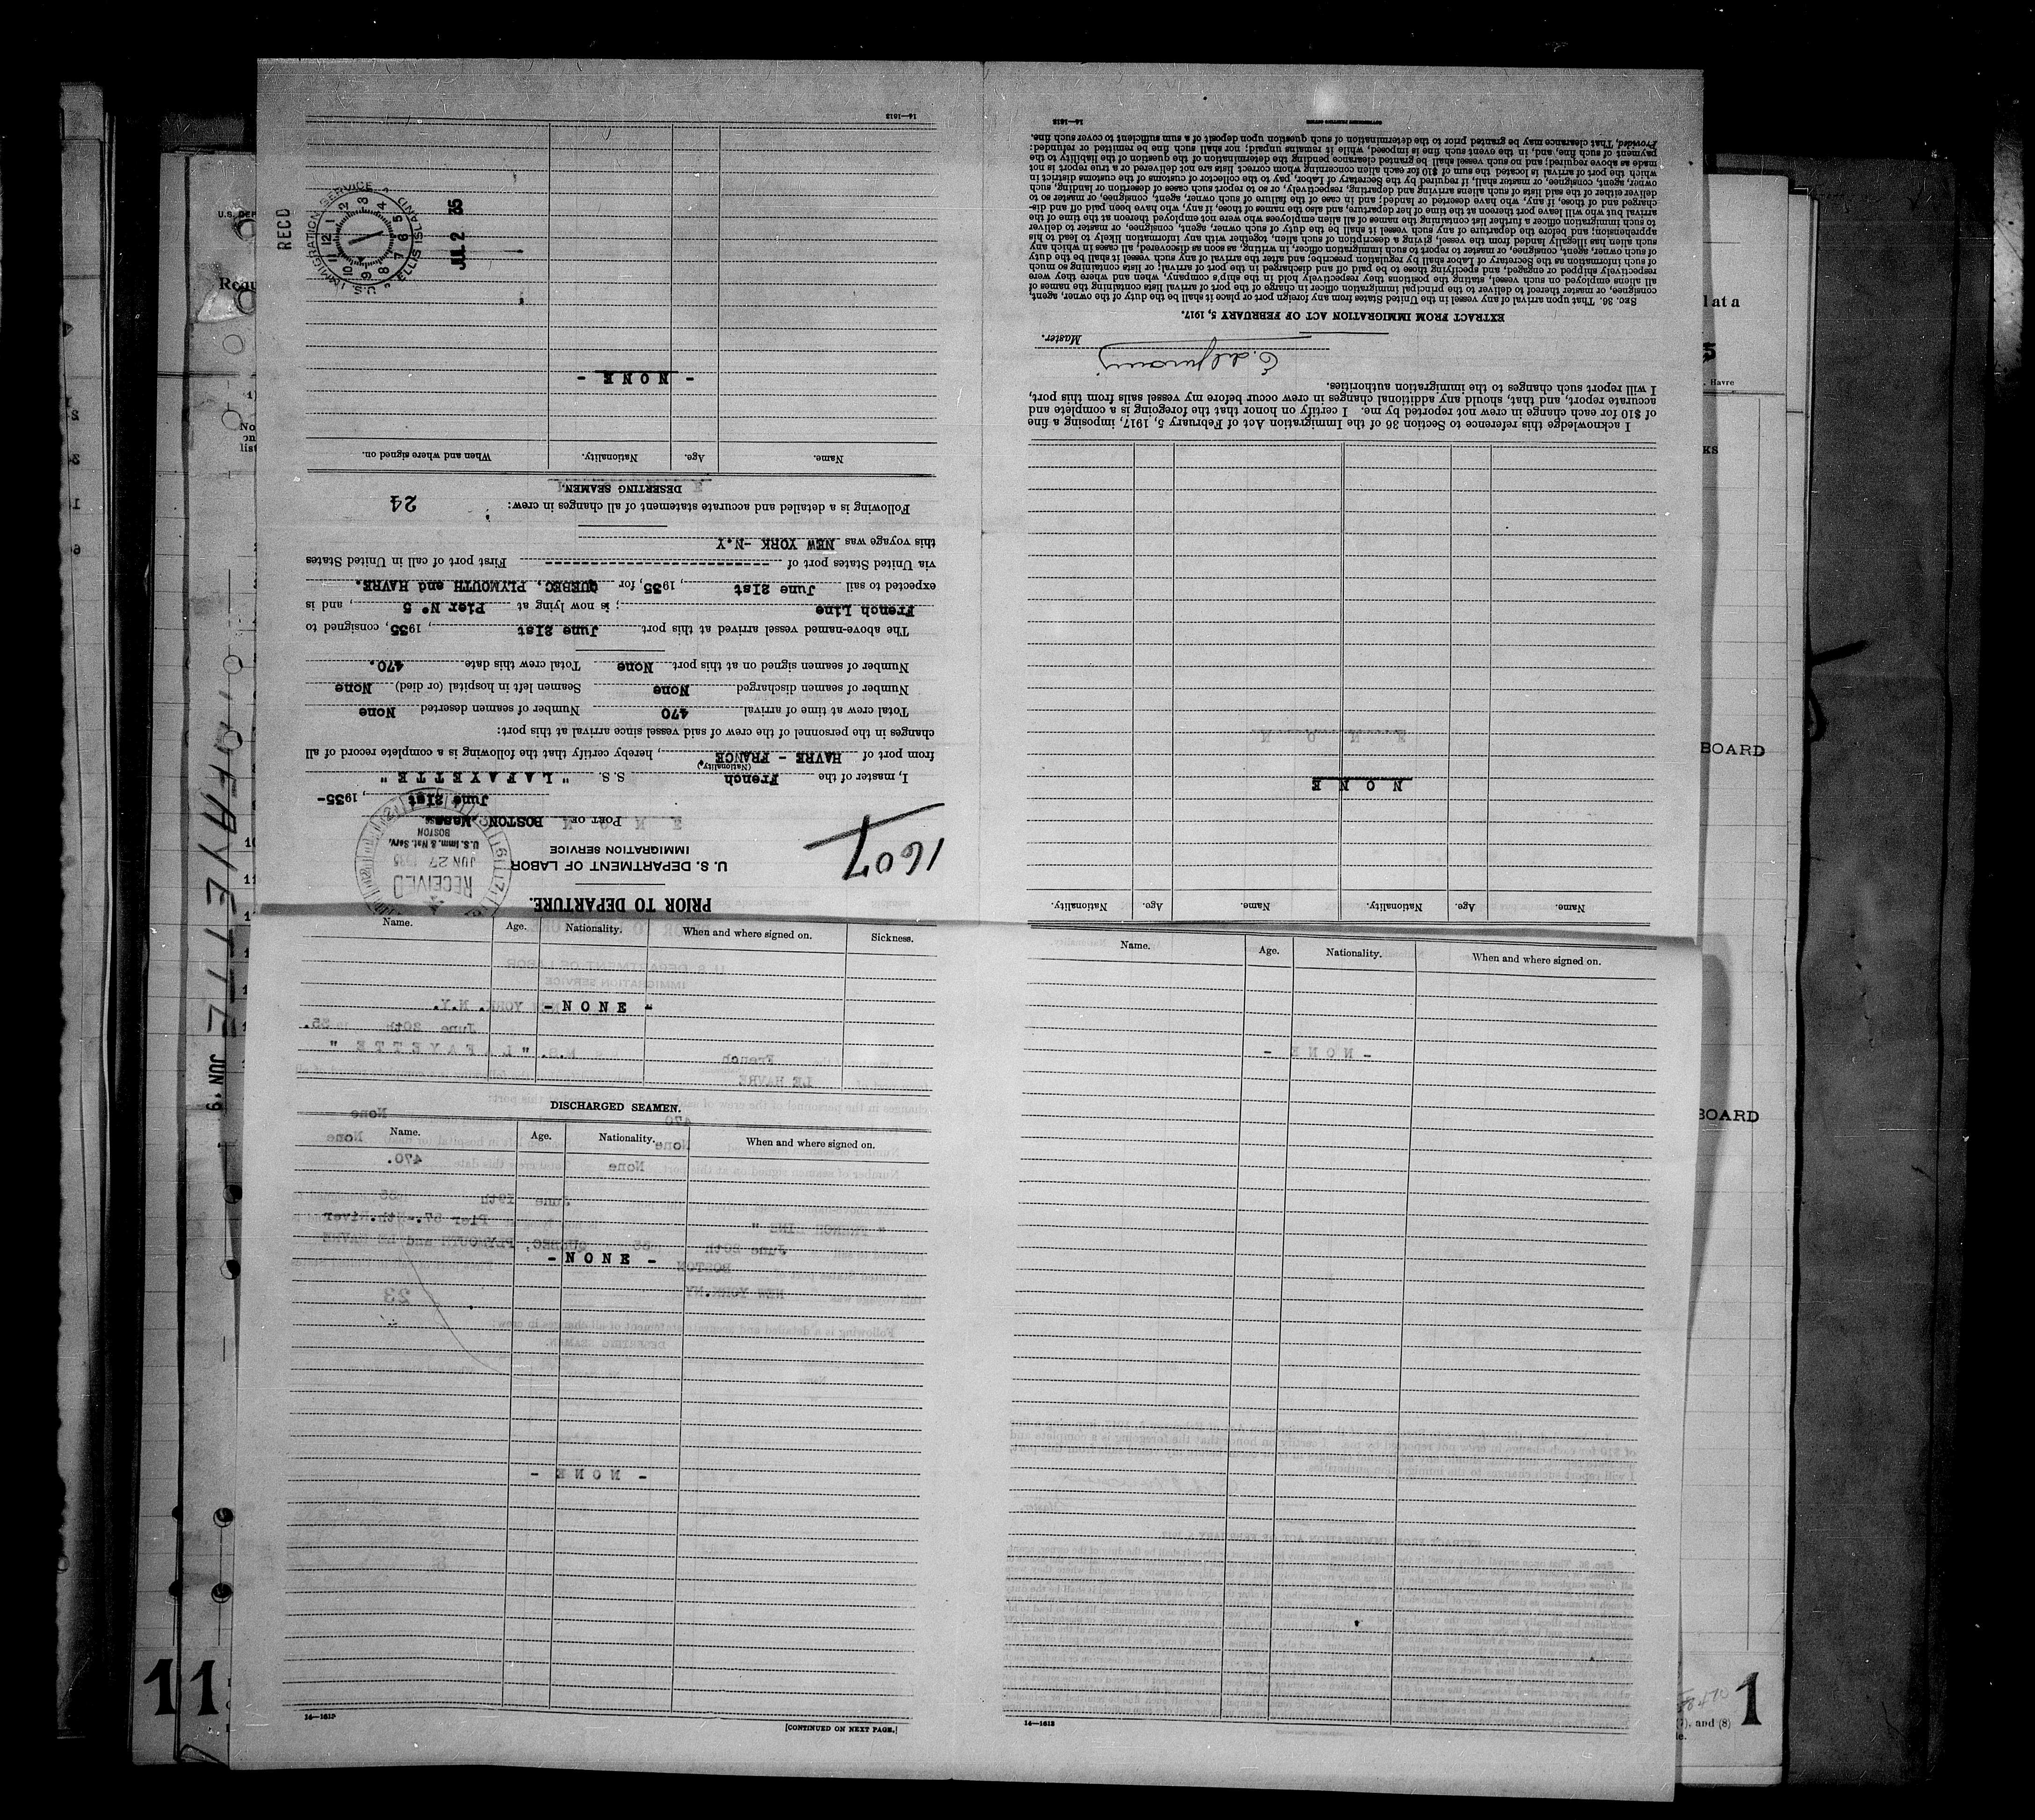 PRIOR TO DEPARTURE.
U. S. DEPARTMENT OF LABOR
IMMIGRATION SERVICE
1607
RECEIVED
JUN 27 1935
U.S. Imm. & Nat. Serv.
BOSTON
PORT OF BOSTON, Mass.
June 21st, 1935-
I, master of the French S. S. " L A F A Y E T T E "
(Nationality)
from port of HAVRE - FRANCE, hereby certify that the following is a complete record of all
changes in the personnel of the crew of said vessel since arrival at this port:
Total crew at time of arrival 470 Number of seamen deserted None
Number of seamen discharged None Seamen left in hospital (or died) None
Number of seamen signed on at this port None Total crew this date 470.
The above-named vessel arrived at this port June 21st, 1935, consigned to
French Line; is now lying at Pier N° 5, and is
expected to sail June 21st, 1935, for QUEBEC, PLYMOUTH and HAVRE.
via United States port of ---------------- First port of call in United States
this voyage was NEW YORK -N.Y
Following is a detailed and accurate statement of all changes in crew: 24
DESERTING SEAMEN.
Name. Age. Nationality. When and where signed on.
- N O N E -
RECD
U.S. IMMIGRATION SERVICE ELLIS ISLAND
12 1 2 3 4 5 6 7 8 9 10 11
JUL 2 35
14—1613
Name. Age. Nationality. Name. Age. Nationality.
N O N E
I acknowledge this reference to Section 36 of the Immigration Act of February 5, 1917, imposing a fine
of $10 for each change in crew not reported by me. I certify on honor that the foregoing is a complete and
accurate report, and that, should any additional changes in crew occur before my vessel sails from this port,
I will report such changes to the immigration authorities.
Master.
EXTRACT FROM IMMIGRATION ACT OF FEBRUARY 5, 1917.
SEC. 36. That upon arrival of any vessel in the United States from any foreign port or place it shall be the duty of the owner, agent,
consignee, or master thereof to deliver to the principal immigration officer in charge of the port of arrival lists containing the names of
all aliens employed on such vessel, stating the positions they respectively hold in the ship's company, when and where they were
respectively shipped or engaged, and specifying those to be paid off and discharged in the port of arrival; or lists containing so much
of such information as the Secretary of Labor shall by regulation prescribe; and after the arrival of any such vessel it shall be the duty
of such owner, agent, consignee, or master to report to such immigration officer, in writing, as soon as discovered, all cases in which any
such alien has illegally landed from the vessel, giving a description of such alien, together with any information likely to lead to his
apprehension; and before the departure of any such vessel it shall be the duty of such owner, agent, consignee, or master to deliver
to such immigration officer a further list containing the names of all alien employees who were not employed thereon at the time of the
arrival but who will leave port thereon at the time of her departure, and also the names of those, if any, who have been paid off and dis-
charged and of those, if any, who have deserted or landed; and in case of the failure of such owner, agent, consignee, or master so to
deliver either of the said lists of such aliens arriving and departing, respectively, or so to report such cases of desertion or landing, such
owner, agent, consignee, or master shall, if required by the Secretary of Labor, pay to the collector of customs of the customs district in
which the port of arrival is located the sum of $10 for each alien concerning whom correct lists are not delivered or a true report is not
made as above required; and no such vessel shall be granted clearance pending the determination of the question of the liability to the
payment of such fine, and, in the event such fine is imposed, while it remains unpaid; nor shall such fine be remitted or refunded:
Provided, That clearance may be granted prior to the determination of such question upon deposit of a sum sufficient to cover such fine.
GOVERNMENT PRINTING OFFICE
14—1613
Name. Age. Nationality. When and where signed on. Sickness.
- N O N E -
DISCHARGED SEAMEN.
Name. Age. Nationality. When and where signed on.
- N O N E -
14—1613
[CONTINUED ON NEXT PAGE.]
Name. Age. Nationality. When and where signed on.
14—1613
LAFAYETTE
JUN '9
11
lata
. Havre
KS
BOARD
BOARD
, and (8)
1